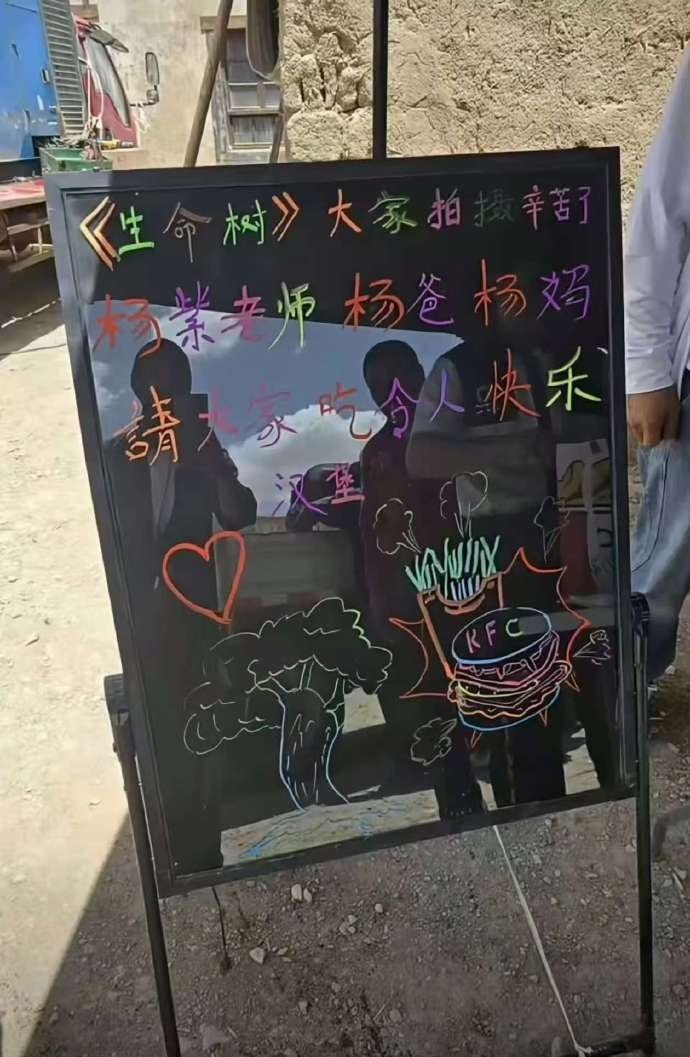 《生命树》大家拍摄辛苦了
杨紫老师 杨爸杨妈
請大家吃令人快乐
汉堡
KFC